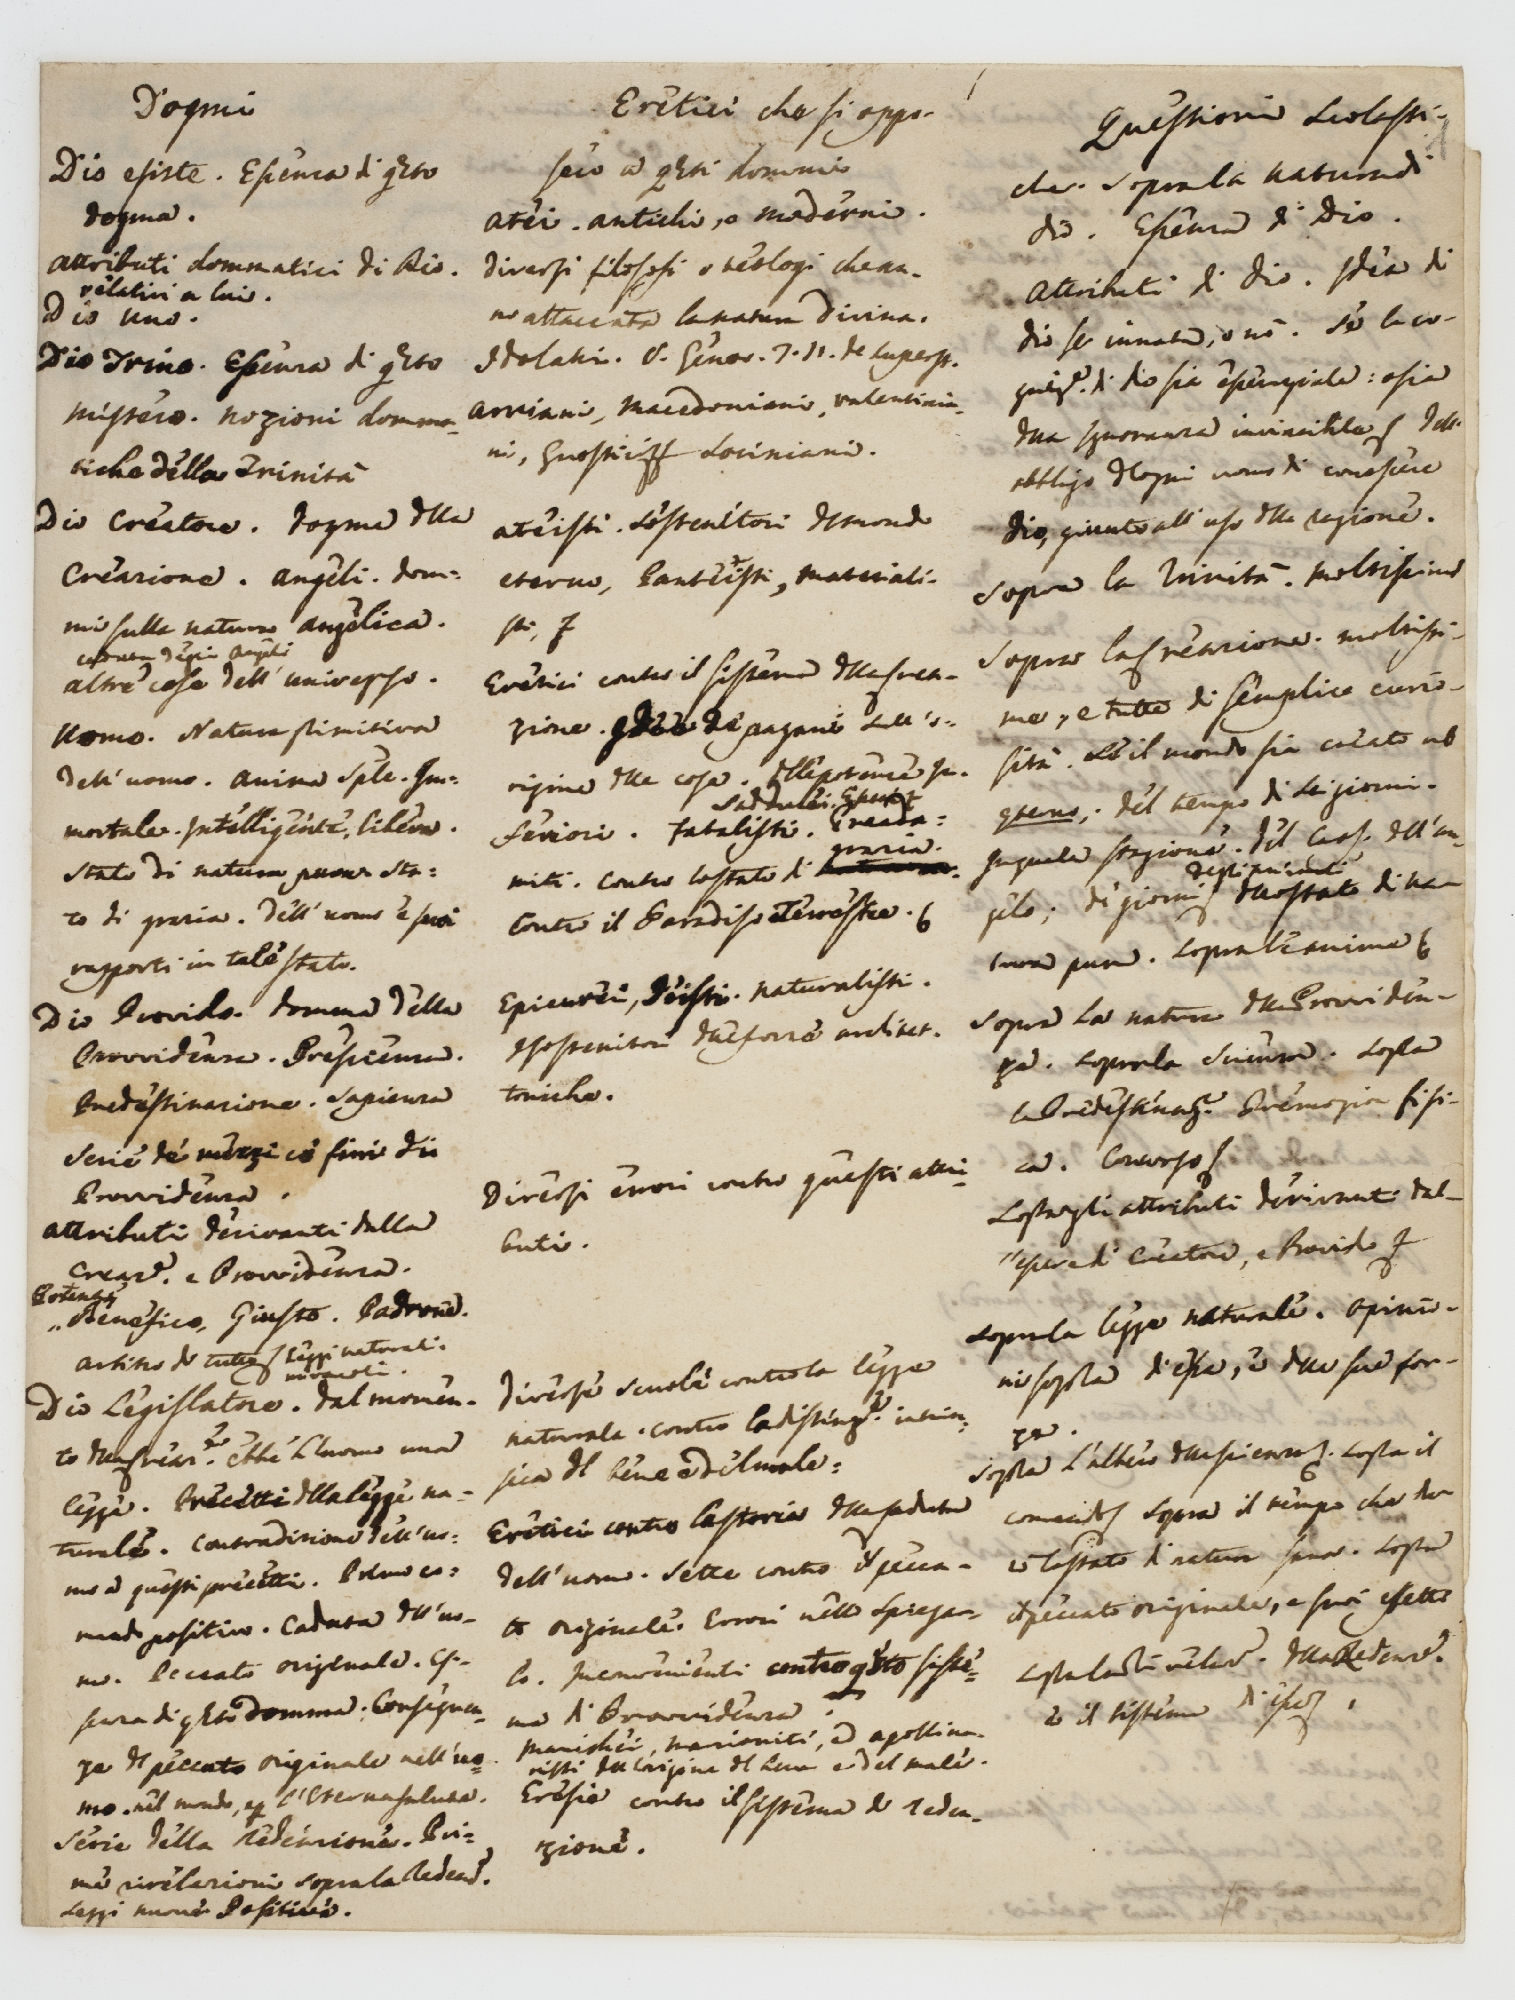 Dogmi
Dio esiste. Essenza di qsto
dogma.
attributi dommatici di Dio.
relativi a lui.
Dio uno.
Dio Trino. Essenza di qsto
mistero. nozioni domma-
tiche della Trinità
Dio Creatore. dogma dlla
Creazione. angeli. dom=
mi sulla natura angelica.
altre cose dell'universo.
Uomo. Natura primitiva
dell'uomo. anima Sple. Im=
mortale. Intelligente, libera.
stato di natura pura sta=
to di grazia. dell'uomo e suoi
rapporti in tale stato.
Dio Provido. domma della
Provvidenza. Prescienza.
Predestinazione. Sapienza
serie de' mezzi e fini di
Provvidenza.
attributi derivanti dalla
Creaze. e Provvidenza.
Potente
" Benefico, Giusto. Padrone.
arbitro di tutto leggi naturali.
miracoli.
Dio Legislatore. dal momen-
to dlla Creaze. ebbe l'uomo una
legge. Precetti dlla legge na-
turale. Contradizione dell'uo=
mo a questi precetti. Primo co=
mando positivo. Caduta dll'uo-
mo. Peccato originale. Es-
senza di qsto domma. Consequen-
ze dl peccato originale nell'uo-
mo. nel mondo, e l'eterna salute.
Serie della redenzione. Pri=
me rivelazioni sopra la Redenze.
Leggi nuove Positive.
Eretici che si oppo-
sero a qsti dommi
atei. antichi, o moderni.
diversi filosofi o teologi che an-
no attaccata la natura divina.
Idolatri. V. Genov. T. II. de superst.
arriani, macedoniani, valentinia-
ni, Gnostici Sociniani.
ateisti. Sostenitori dl mondo
eterno, Panteisti, materiali-
sti,
Eretici contro il sistema dlla Crea-
zione. Idee de' pagani sull'o=
rigine dlle cose. dlle potenze In-
feriori. Fatalisti. Preada=
Sadducei.
miti. Contro lo stato di
grazia.
Contro il Paradiso Terrestre.
Epicurei, deisti. naturalisti.
Sostenitori dlle forze architet-
toniche.
Diversi errori contro questi attri-
buti.
Diverse scuole contro la legge
naturale. contro la distinze. intrin=
sica dl bene e del male=
Eretici contro la storia dlla caduta
dell'uomo. Sette contro il pecca-
to originale. Errori nello spiegar-
lo. Inconvenienti contro qsto siste=
ma di Provvidenza.
manichei, marcioniti, ed apollina-
risti dll'origine dl bene e del male.
Eresie contro il sistema di reden-
zione.
Questioni Scolasti-
che. Sopra la natura di
dio. Essenza di Dio.
attributi di dio. Idea di
dio se innata, o nò. Se la co-
gnize. di dio sia essenziale: o sia
dlla ignoranza invincibile dell'
obbligo d'ogni uomo di conoscere
Dio, giunto all'uso dlla ragione.
Sopra la Trinità. moltissime
Sopra la Creazione. moltissi-
me, e tutte di semplice curio-
sità. Se il mondo sia creato ab
eterno; del tempo di sei giorni.
In quale stagione. del Caos. dll'an-
gelo; di giorni dllo stato di na-
degli animali
tura pura. Sopra le anime
Sopra la natura dlla Provviden-
za. Sopra la Scienza. Sopra
la Predestinaze. Premozion fisi-
ca. Concorso
Sopra gli attributi derivanti dal-
l'essere di Creatore, e Provido
Sopra la legge naturale. Opinio-
ni sopra di essa, e dlla sua for-
za.
Sopra l'albero dlla scienza. Sopra il
comando Sopra il tempo che du-
rò lo stato di natura sana. Sopra
il peccato originale, e suoi effetti
Sopra la rivelaze. dlla Redenze.
e il sistema di essa.